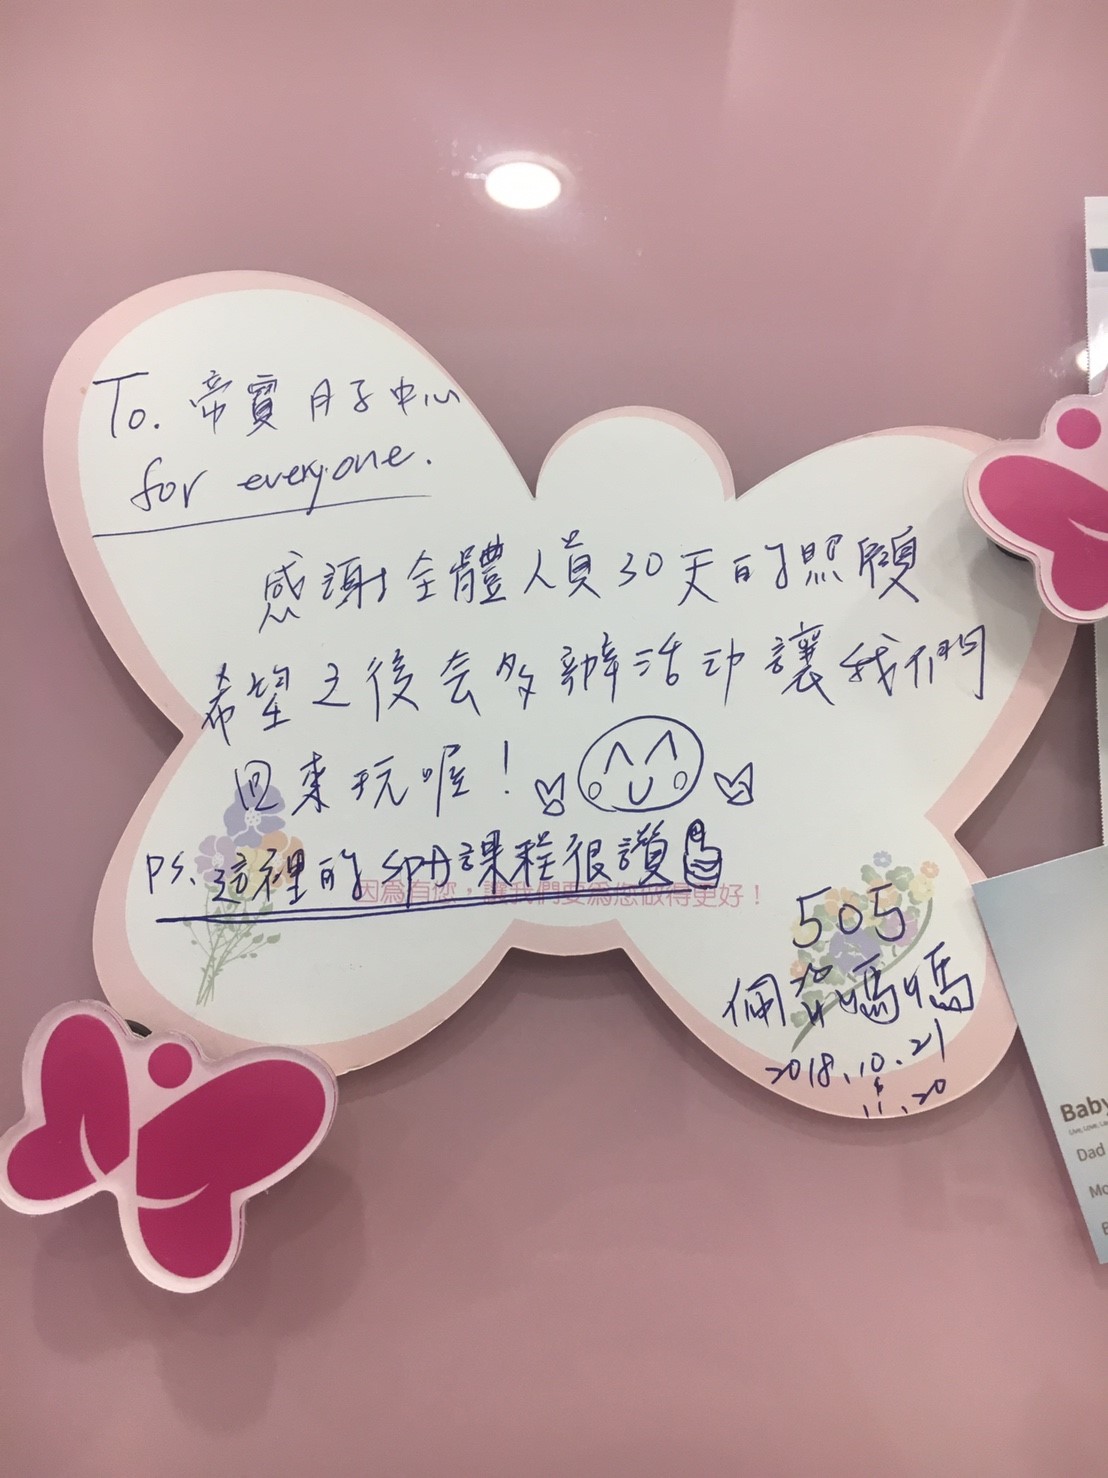 To. 帝寶月子中心
for everyone.
感謝全體人員30天的照顧
希望之後会多辦活动讓我們
回來玩喔！
PS. 這裡的SPA課程很讚
因為有您，讓我們要為您做得更好！
505
佩君媽媽
2018.10.21
11.20
Baby
Live, Love, La
Dad
Mo